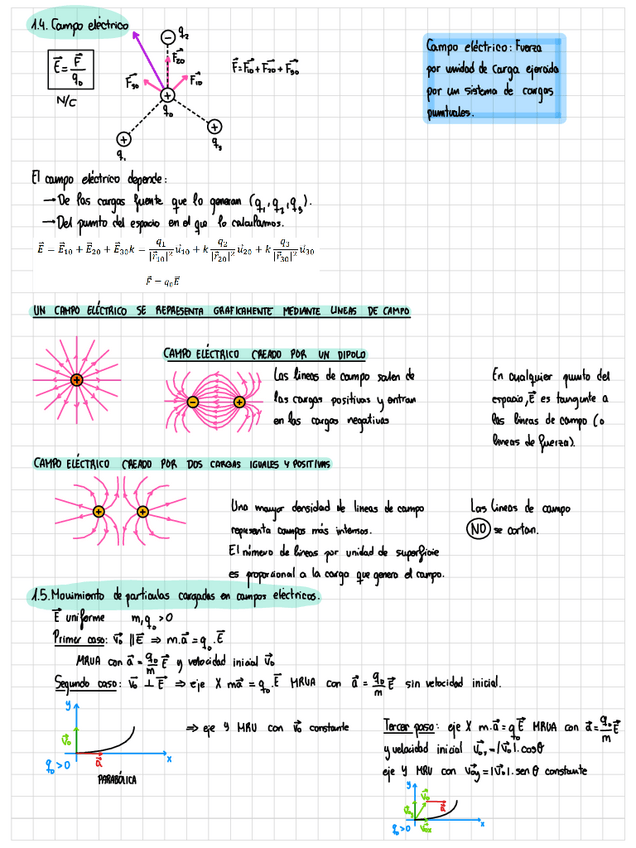 1.4. Campo eléctrico
E⃗ = F⃗/q₀
N/C
q₂
F₂₀
F₃₀
F₁₀
q₀
q₁
q₃
F⃗=F⃗₁₀+F⃗₂₀+F⃗₃₀
Campo eléctrico: Fuerza
por unidad de carga ejercida
por un sistema de cargas
puntuales.
El campo eléctrico depende:
→De las cargas fuente que lo generan (q₁,q₂,q₃).
→Del punto del espacio en el que lo calculamos.
E⃗ = E⃗₁₀ + E⃗₂₀ + E⃗₃₀k = q₁/|r⃗₁₀|² u⃗₁₀ + k q₂/|r⃗₂₀|² u⃗₂₀ + k q₃/|r⃗₃₀|² u⃗₃₀
F⃗ = q₀E⃗
UN CAMPO ELÉCTRICO SE REPRESENTA GRAFICAMENTE MEDIANTE LINEAS DE CAMPO
CAMPO ELÉCTRICO CREADO POR UN DIPOLO
Las lineas de campo salen de
las cargas positivas y entran
en las cargas negativas
En cualquier punto del
espacio, E⃗ es tangente a
las lineas de campo (o
lineas de fuerza).
CAMPO ELÉCTRICO CREADO POR DOS CARGAS IGUALES Y POSITIVAS
Una mayor densidad de lineas de campo
representa campos más intensos.
El número de lineas por unidad de superficie
es proporcional a la carga que genera el campo.
Las lineas de campo
NO se cortan.
1.5. Movimiento de particulas cargadas en campos eléctricos.
E⃗ uniforme m,q₀>0
Primer caso: v⃗₀ ∥ E⃗ ⇒ m.a⃗ = q₀.E⃗
MRUA con a⃗ = q₀/m E⃗ y velocidad inicial v⃗₀
Segundo caso: v⃗₀ ⊥ E⃗ ⇒ eje X ma⃗ = q₀.E⃗ MRUA con a⃗ = q₀/m E⃗ sin velocidad inicial.
⇒ eje y MRU con v⃗₀ constante
y
v⃗₀
a⃗
x
q₀>0
PARABÓLICA
Tercer paso: eje X m.a⃗=qE⃗ MRUA con a⃗=q₀/m E⃗
y velocidad inicial v⃗₀ₓ=|v⃗₀|.cosθ
eje y MRU con v⃗₀y=|v⃗₀|.sen θ constante
y
v⃗₀
v⃗₀y
a⃗
v⃗₀x
x
q₀>0